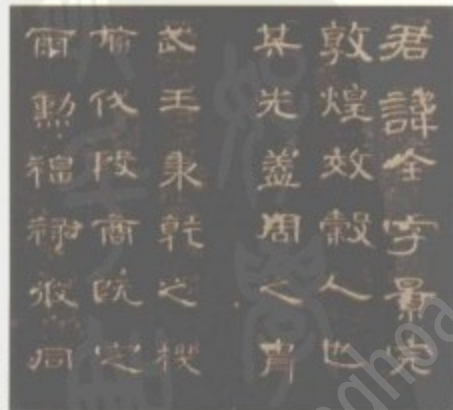 君諱全字景完
敦煌效穀人也
其先蓋周之胄
武王秉乾之機
翦伐殷商既定
爾勳福祿攸同
nghoa